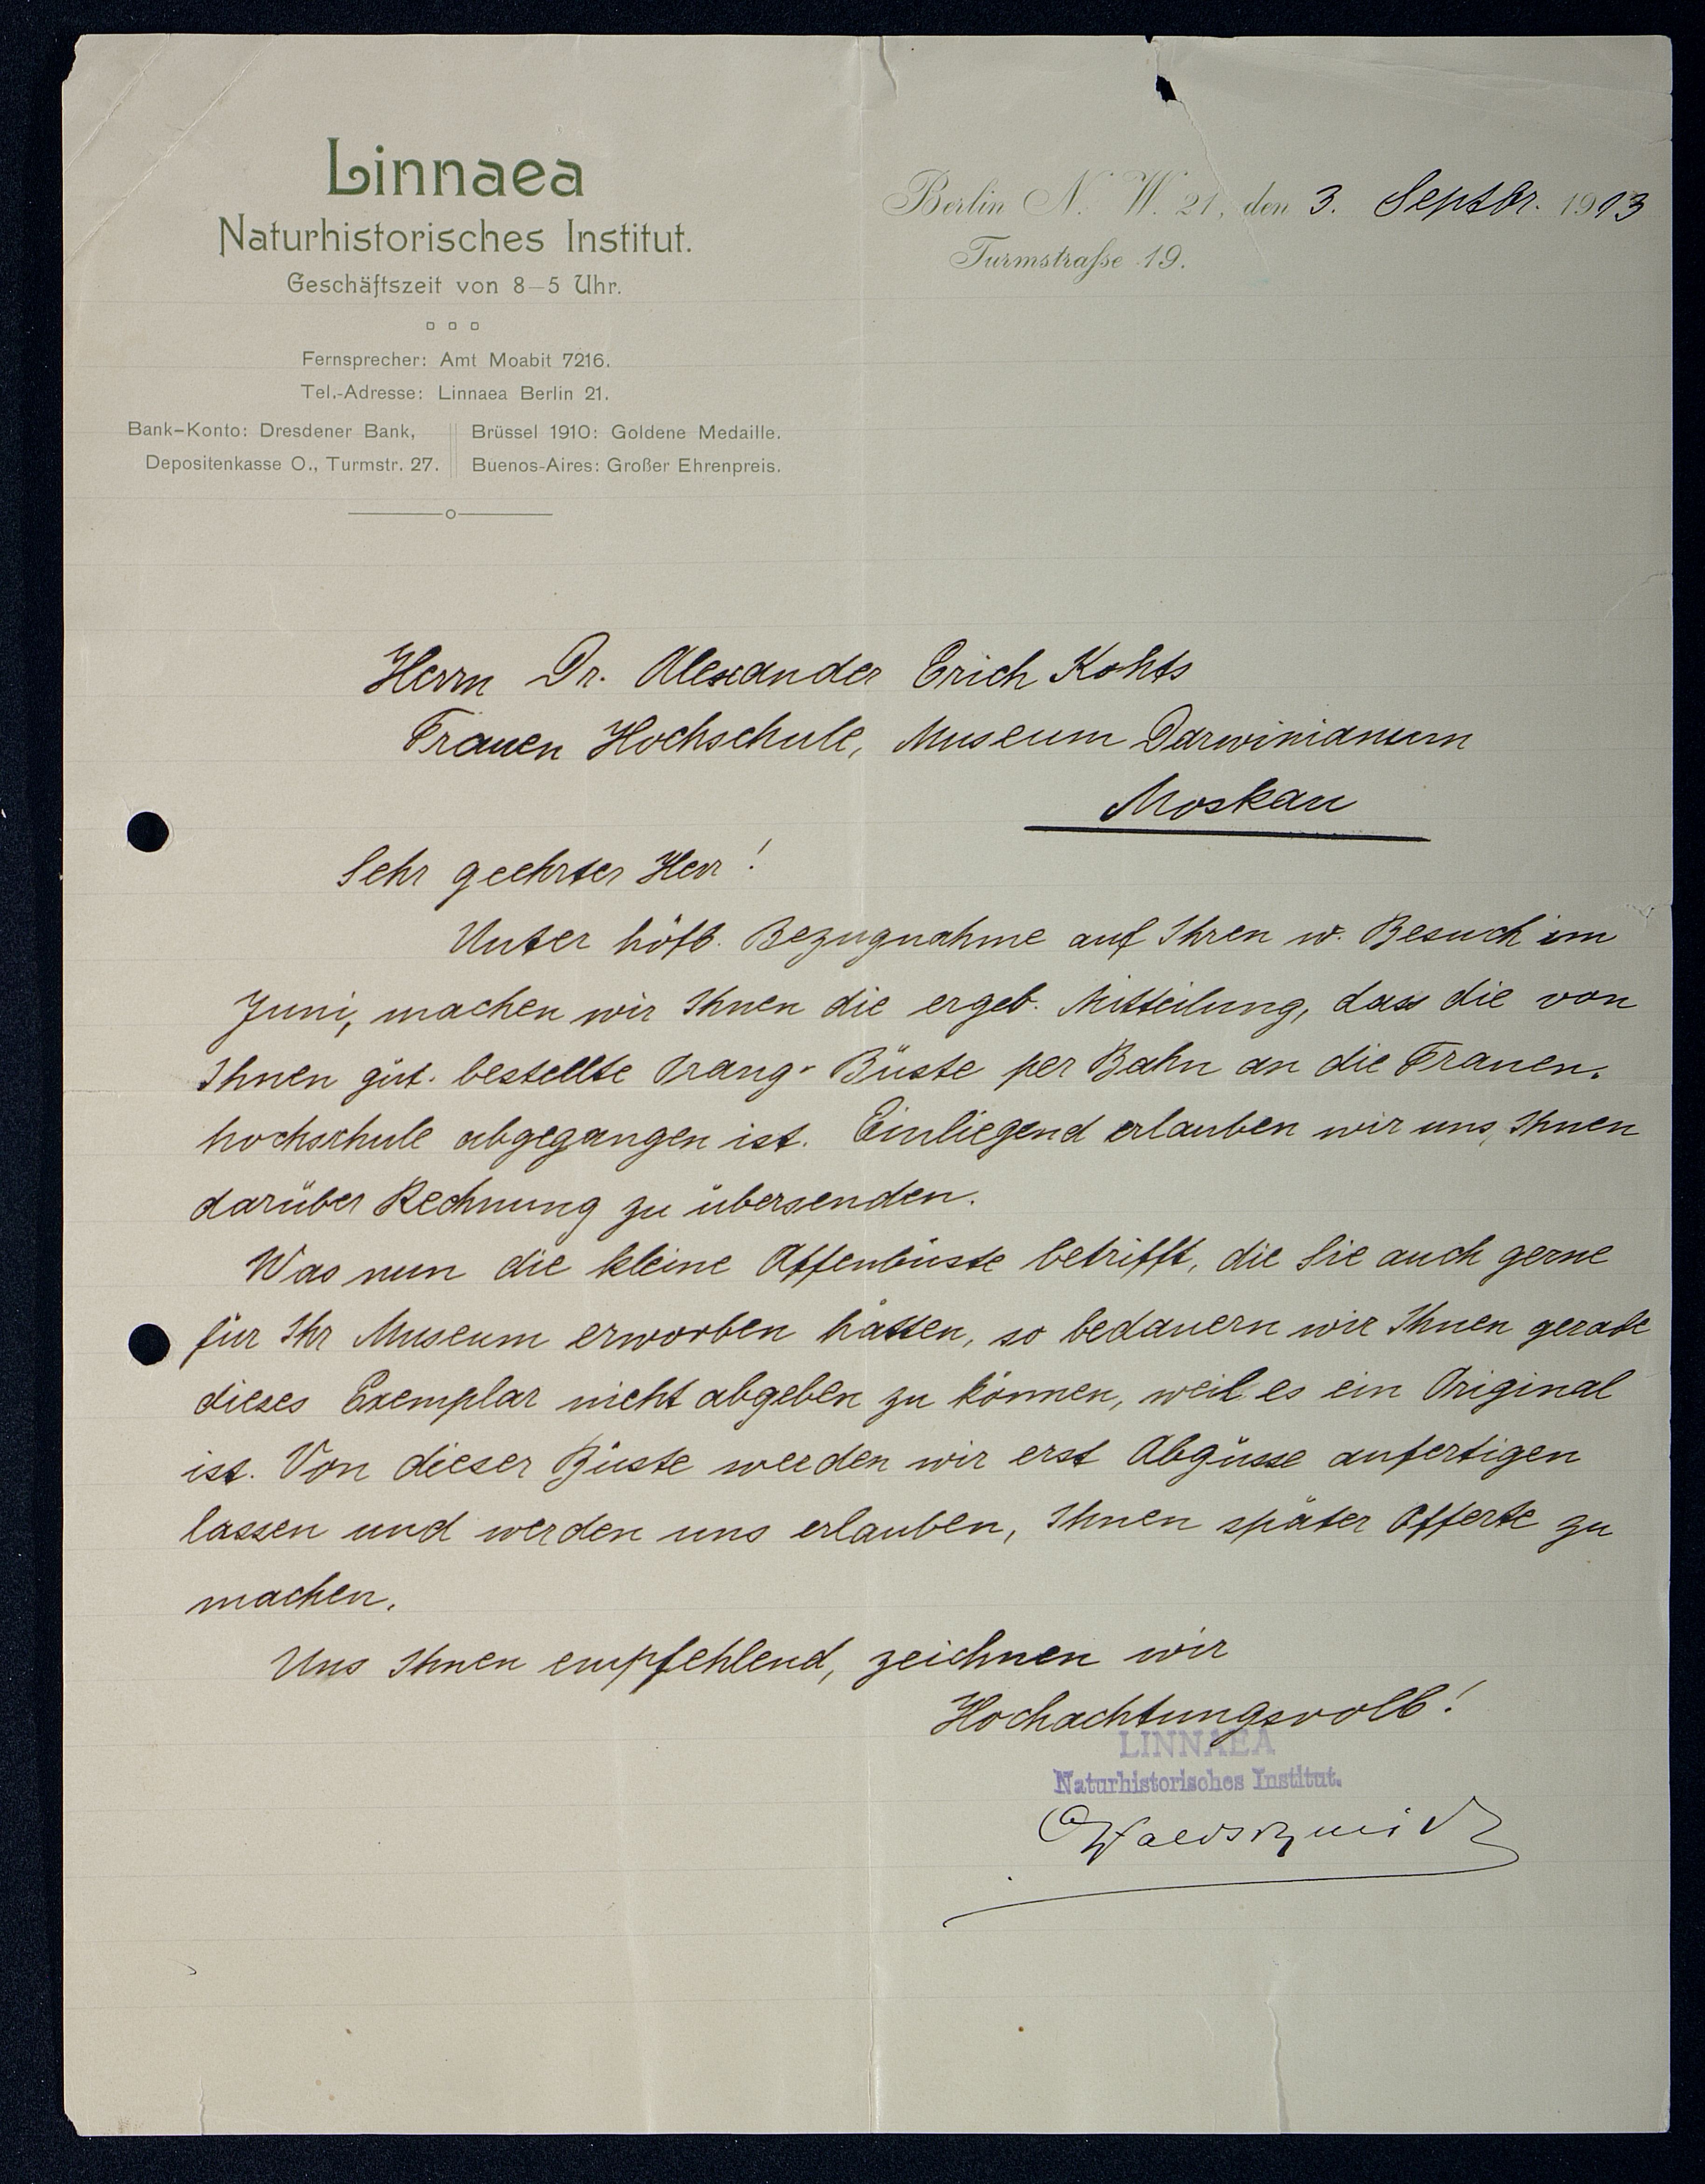 Linnaea
Naturhistorisches Institut.
Geschäftszeit von 8–5 Uhr.
Fernsprecher: Amt Moabit 7216.
Tel.-Adresse: Linnaea Berlin 21.
Bank-Konto: Dresdener Bank,
Depositenkasse O., Turmstr. 27.
Brüssel 1910: Goldene Medaille.
Buenos-Aires: Großer Ehrenpreis.
Berlin N. W. 21, den 3. Septbr. 1913
Turmstraße 19.
Herrn Dr. Alexander Erich Kohts
Frauen Hochschule, Museum Darwinianum
Moskau
Sehr geehrter Herr!
Unter höfl. Bezugnahme auf Ihren w. Besuch im
Juni, machen wir Ihnen die ergeb. Mitteilung, dass die von
Ihnen güt. bestellte Orang-Büste per Bahn an die Frauen-
hochschule abgegangen ist. Einliegend erlauben wir uns, Ihnen
darüber Rechnung zu übersenden.
Was nun die kleine Affenbüste betrifft, die Sie auch gerne
für Ihr Museum erworben hätten, so bedauern wir Ihnen gerade
dieses Exemplar nicht abgeben zu können, weil es ein Original
ist. Von dieser Büste werden wir erst Abgüsse anfertigen
lassen und werden uns erlauben, Ihnen später Offerte zu
machen.
Uns Ihnen empfehlend, zeichnen wir
Hochachtungsvoll!
LINNAEA
Naturhistorisches Institut.